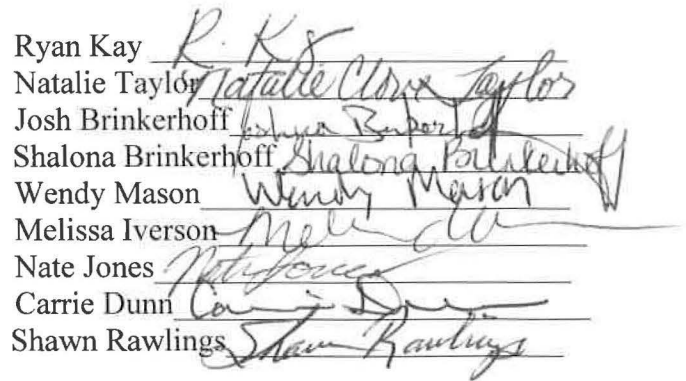 Ryan Kay R. Ky
Natalie Taylor Natalie Clove Taylor
Josh Brinkerhoff Joshua Brinkerhoff
Shalona Brinkerhoff Shalona Brinkerhoff
Wendy Mason Wendy Mason
Melissa Iverson
Nate Jones Nate Jones
Carrie Dunn Carrie Dunn
Shawn Rawlings Shawn Rawlings